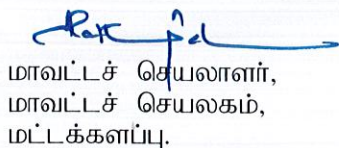 மாவட்டச் செயலாளர்,
மாவட்டச் செயலகம்,
மட்டக்களப்பு.